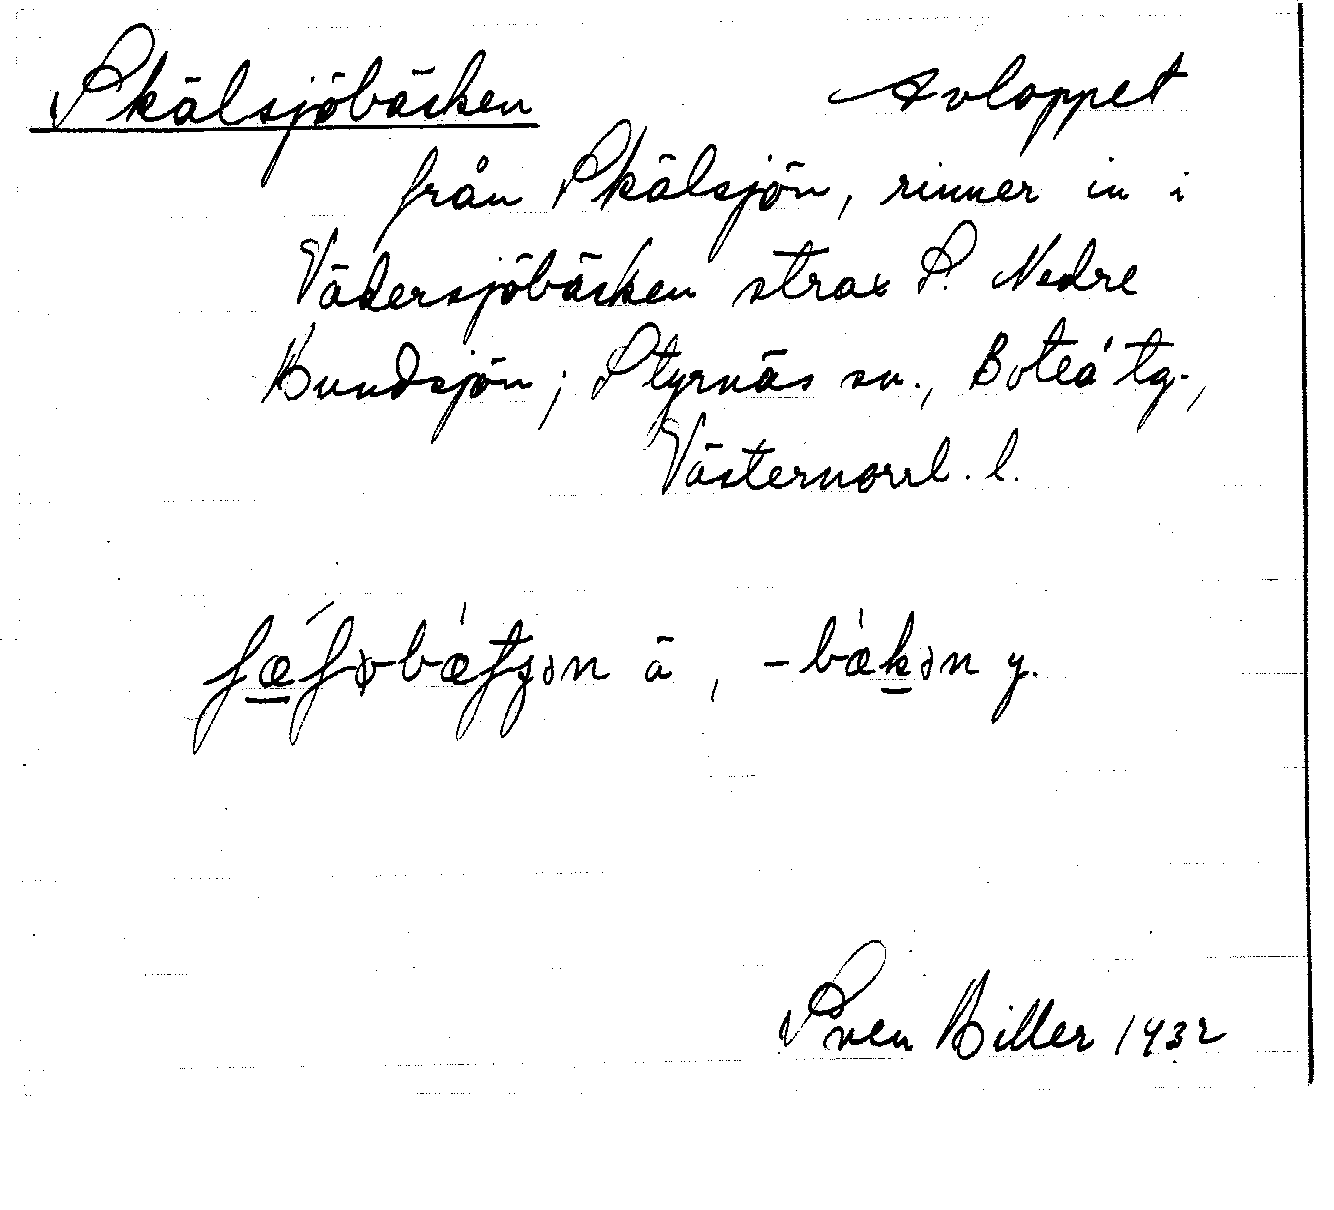 Skälsjöbäcken Avloppet
från Skälsjön, rinner in i
Vädersjöbäcken strax S. Nedre
Bundsjön; Styrnäs sn., Boteå tg.,
Västernorrl. l.
ä, y.
Sven Biller 1932